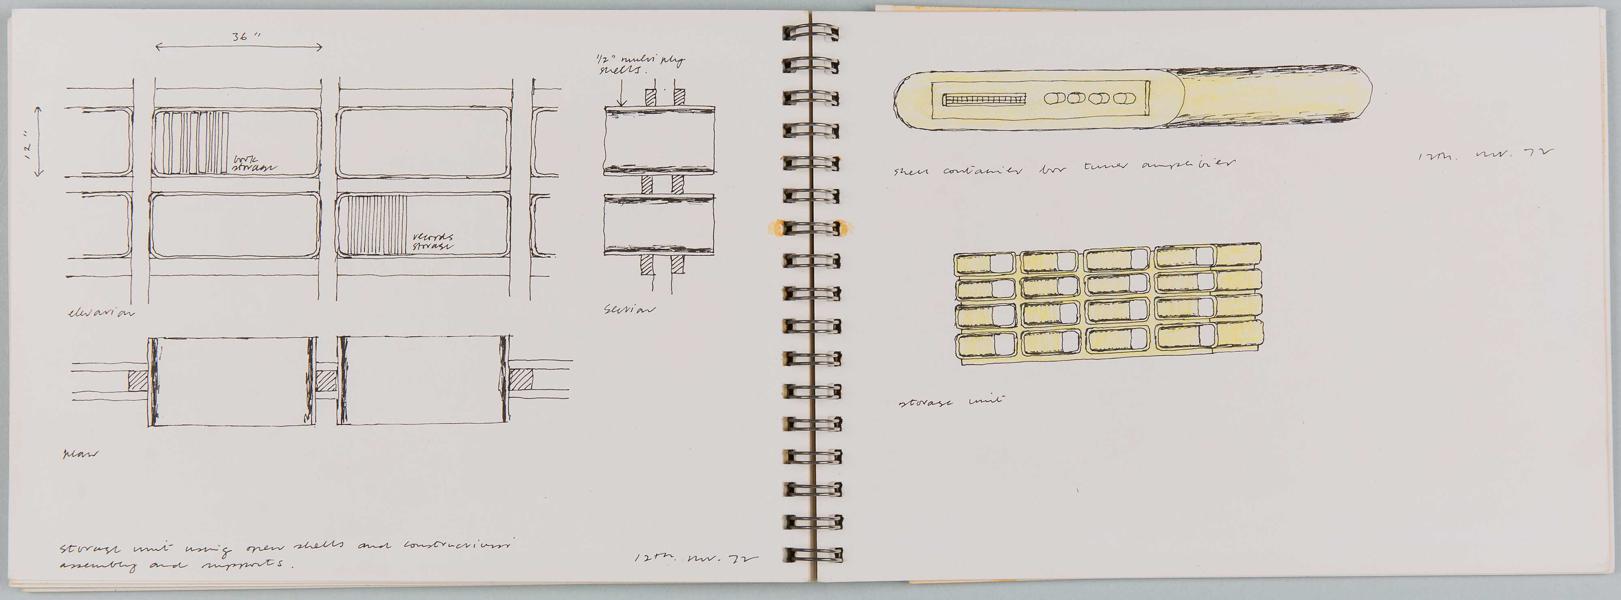 36"
12"
book
storage
records
storage
elevation
1/2" multi ply
shells.
section
plan
storage unit using open shells and constructivist
assembly and supports.
12th. nov. 72
shell container for tuner amplifier
12th. nov. 72
storage unit